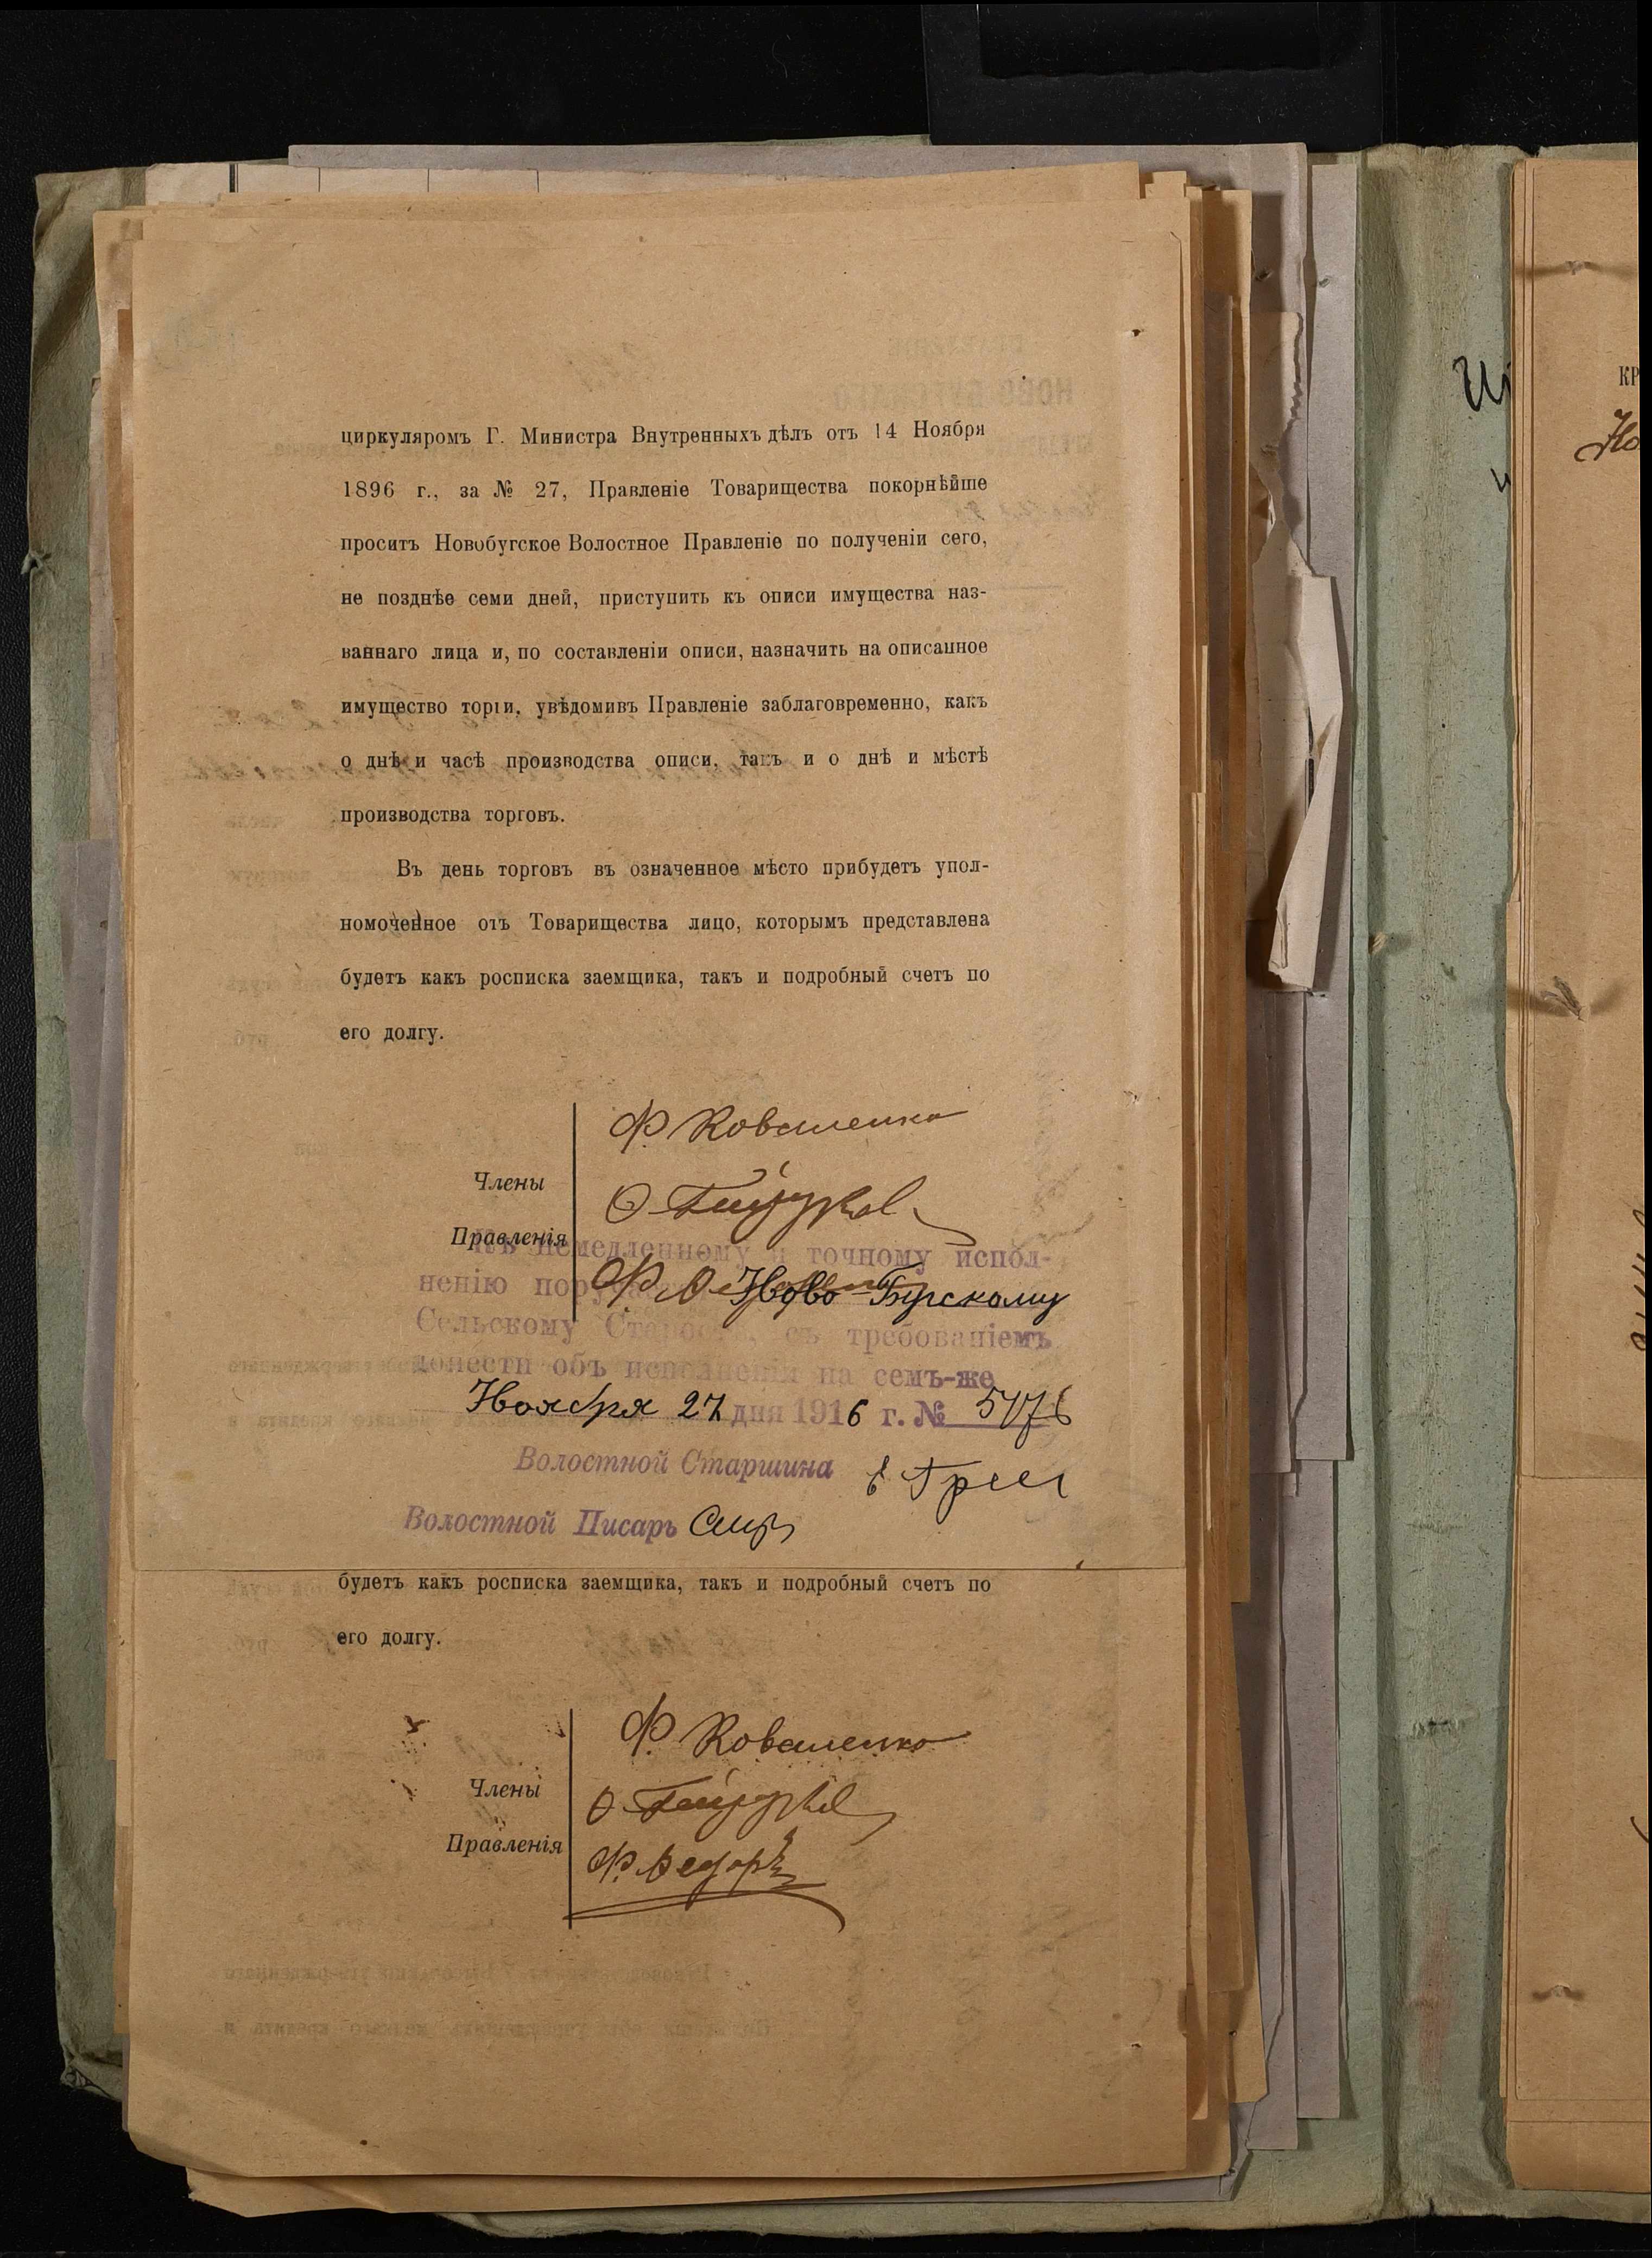 циркуляромъ Г. Министра Внутренныхъ дѣлъ отъ 14 Ноября
1896 г., за № 27, Правленіе Товарищества покорнѣйше
проситъ Новобугское Волостное Правленіе по полученіи сего,
не позднѣе семи дней, приступить къ описи имущества наз-
ваннаго лица и, по составленіи описи, назначить на описанное
имущество торги, увѣдомивъ Правленіе заблаговременно, какъ
о днѣ и часѣ производства описи, такъ и о днѣ и мѣстѣ
производства торговъ.
Въ день торговъ въ означенное мѣсто прибудетъ упол-
номоченное отъ Товарищества лицо, которымъ представлена
будетъ какъ росписка заемщика, такъ и подробный счетъ по
его долгу.
Ф. Коваленко
Члены
Правленія
Къ немедленному и точному испол-
ненію Ново-Бугскому
Сельскому Старостѣ, съ требованіемъ
донести объ исполненіи на семъ-же
Ноября 27 дня 1916 г. № 5476
Волостной Старшина
Волостной Писарь
будетъ какъ росписка заемщика, такъ и подробный счетъ по
его долгу.
Ф. Коваленко
Члены
Правленія